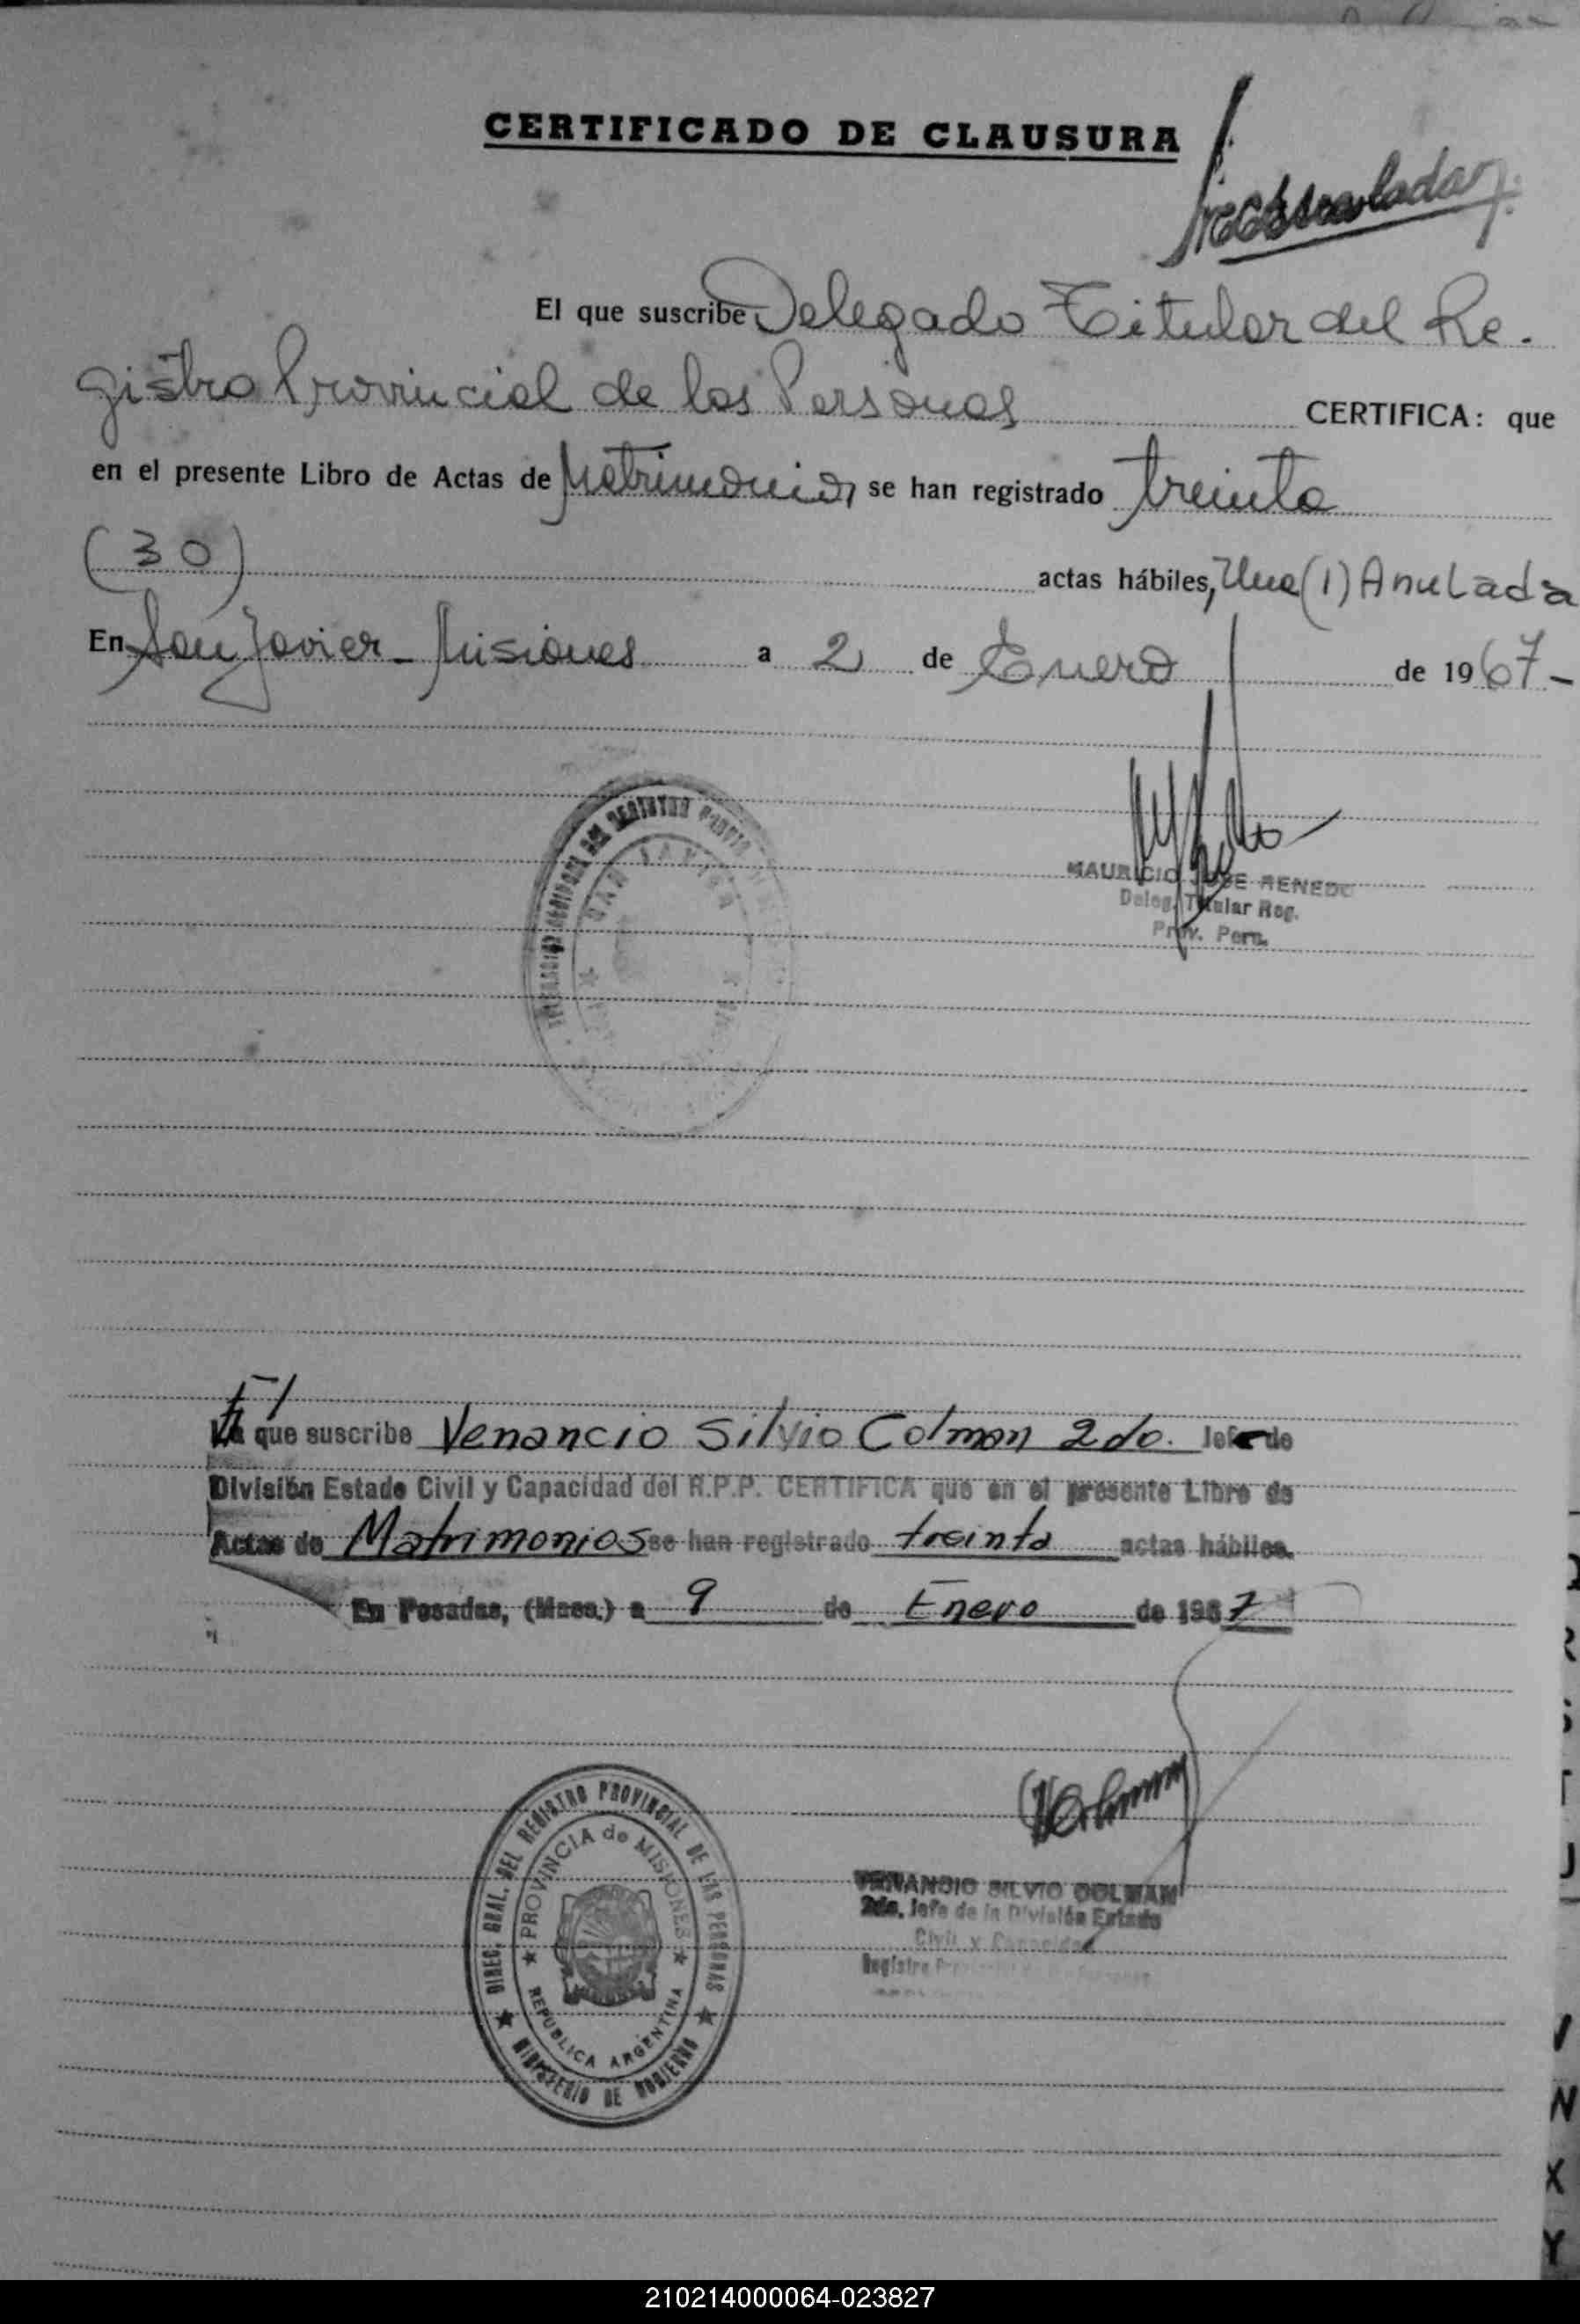 CERTIFICADO DE CLAUSURA
El que suscribe Delegado Titular del Re-
gistro Provincial de las Personas CERTIFICA: que
en el presente Libro de Actas de Matrimonios se han registrado treinta
(30) actas hábiles, Una (1) Anulada
En San Javier - Misiones a 2 de Enero de 1967-
SAN JAVIER
MAURICIO JOSE RENEDO
Deleg. Titular Reg.
Prov. Pers.
El
La que suscribe Venancio Silvio Colman 2do. Jefe de
División Estado Civil y Capacidad del R.P.P. CERTIFICA que en el presente Libro de
Actas de Matrimonios se han registrado treinta actas hábiles.
En Posadas, (Mnes.) a 9 de Enero de 1967
DIREC. GRAL. DEL REGISTRO PROVINCIAL DE LAS PERSONAS
PROVINCIA de MISIONES
REPUBLICA ARGENTINA
MINISTERIO DE GOBIERNO
VENANCIO SILVIO COLMAN
2do. Jefe de la División Estado
Civil y Capacidad
Registro
210214000064-023827